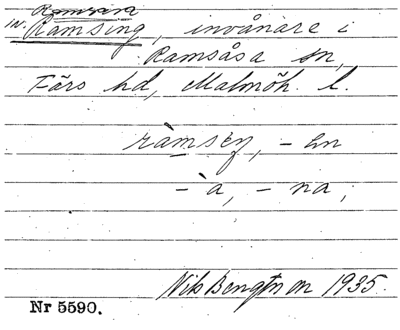 IN. Ramsing, invånare i
Ramsåsa sn,
Färs hd, Malmöh. l.
ràmseŋ, -en
-a, -na;
Nils Bengtsson 1935.
Nr 5590.